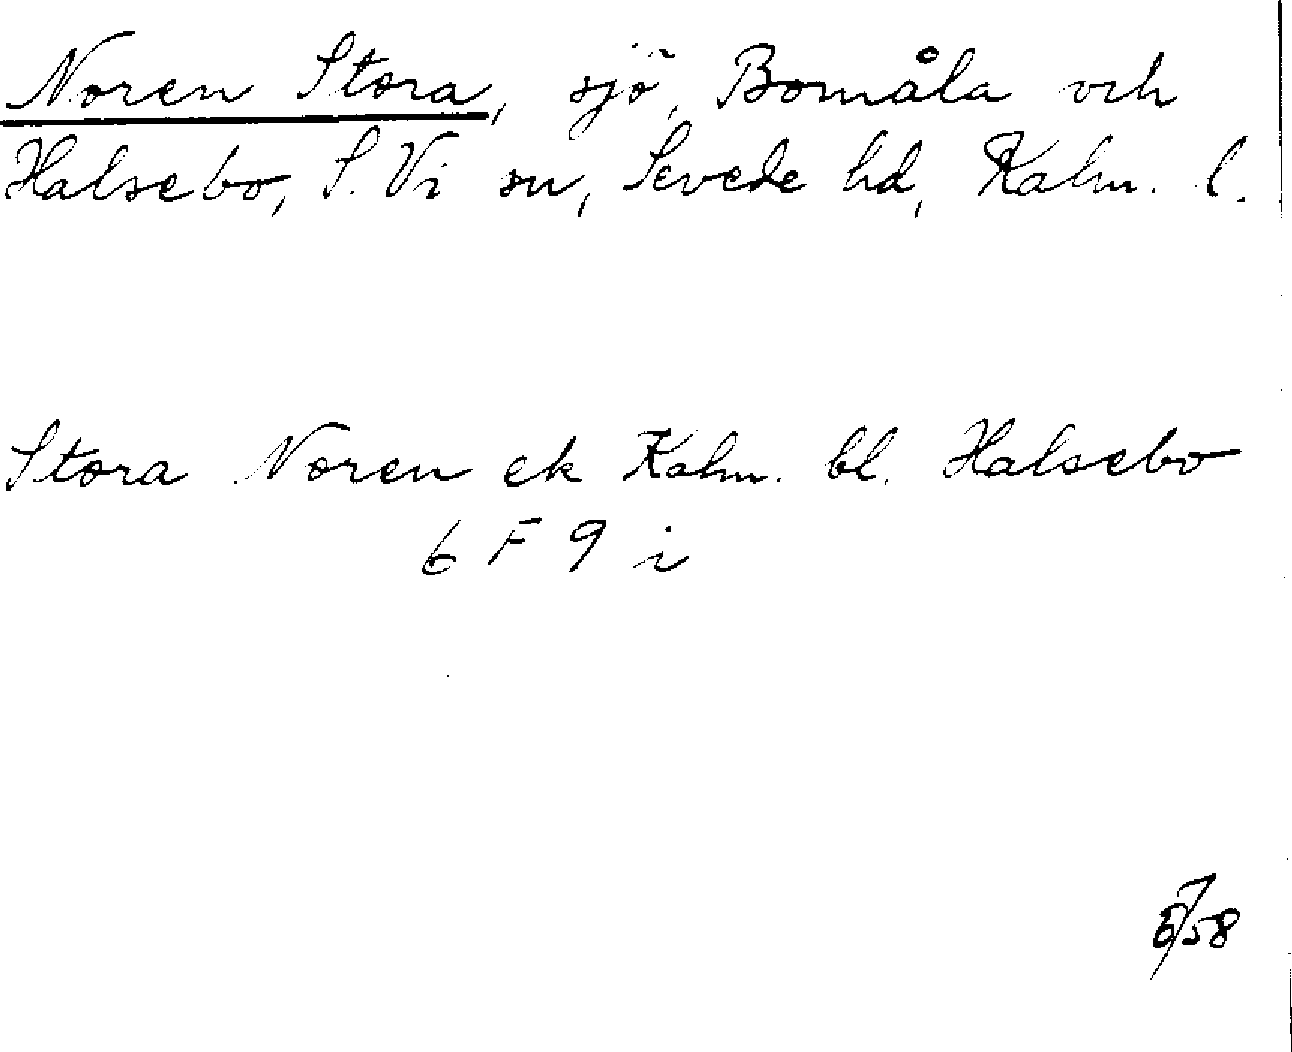 Noren Stora, sjö, Bomåla och
Halsebo, S. Vi sn, Sevede hd, Kalm. l.
Stora Noren ek Kalm. bl. Halsebo
6 F 9 i